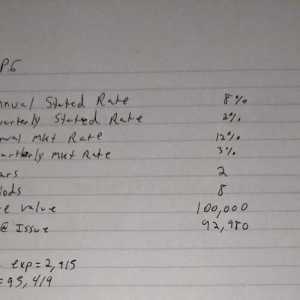 P.5
nnual Stated Rate 8%
uarterly Stated Rate 2%
nual Mkt Rate 12%
uarterly Mkt Rate 3%
ars 2
iods 8
e value 100,000
@ Issue 92,980
exp = 2,915
= 95,419